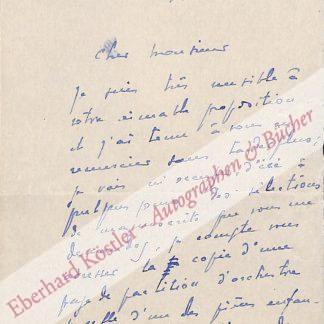 Cher Monsieur
Je suis très sensible à
votre aimable proposition
et j'ai tenu à vous en
remercier sans tarder plus;
je vais
quelques jours des
de manuscrits que vous me
demandez, je compte vous
donner la copie d'une
page de partition d'orchestre
celle d'une des pièces enfan-
Eberhard Köstler - Autographen & Bücher